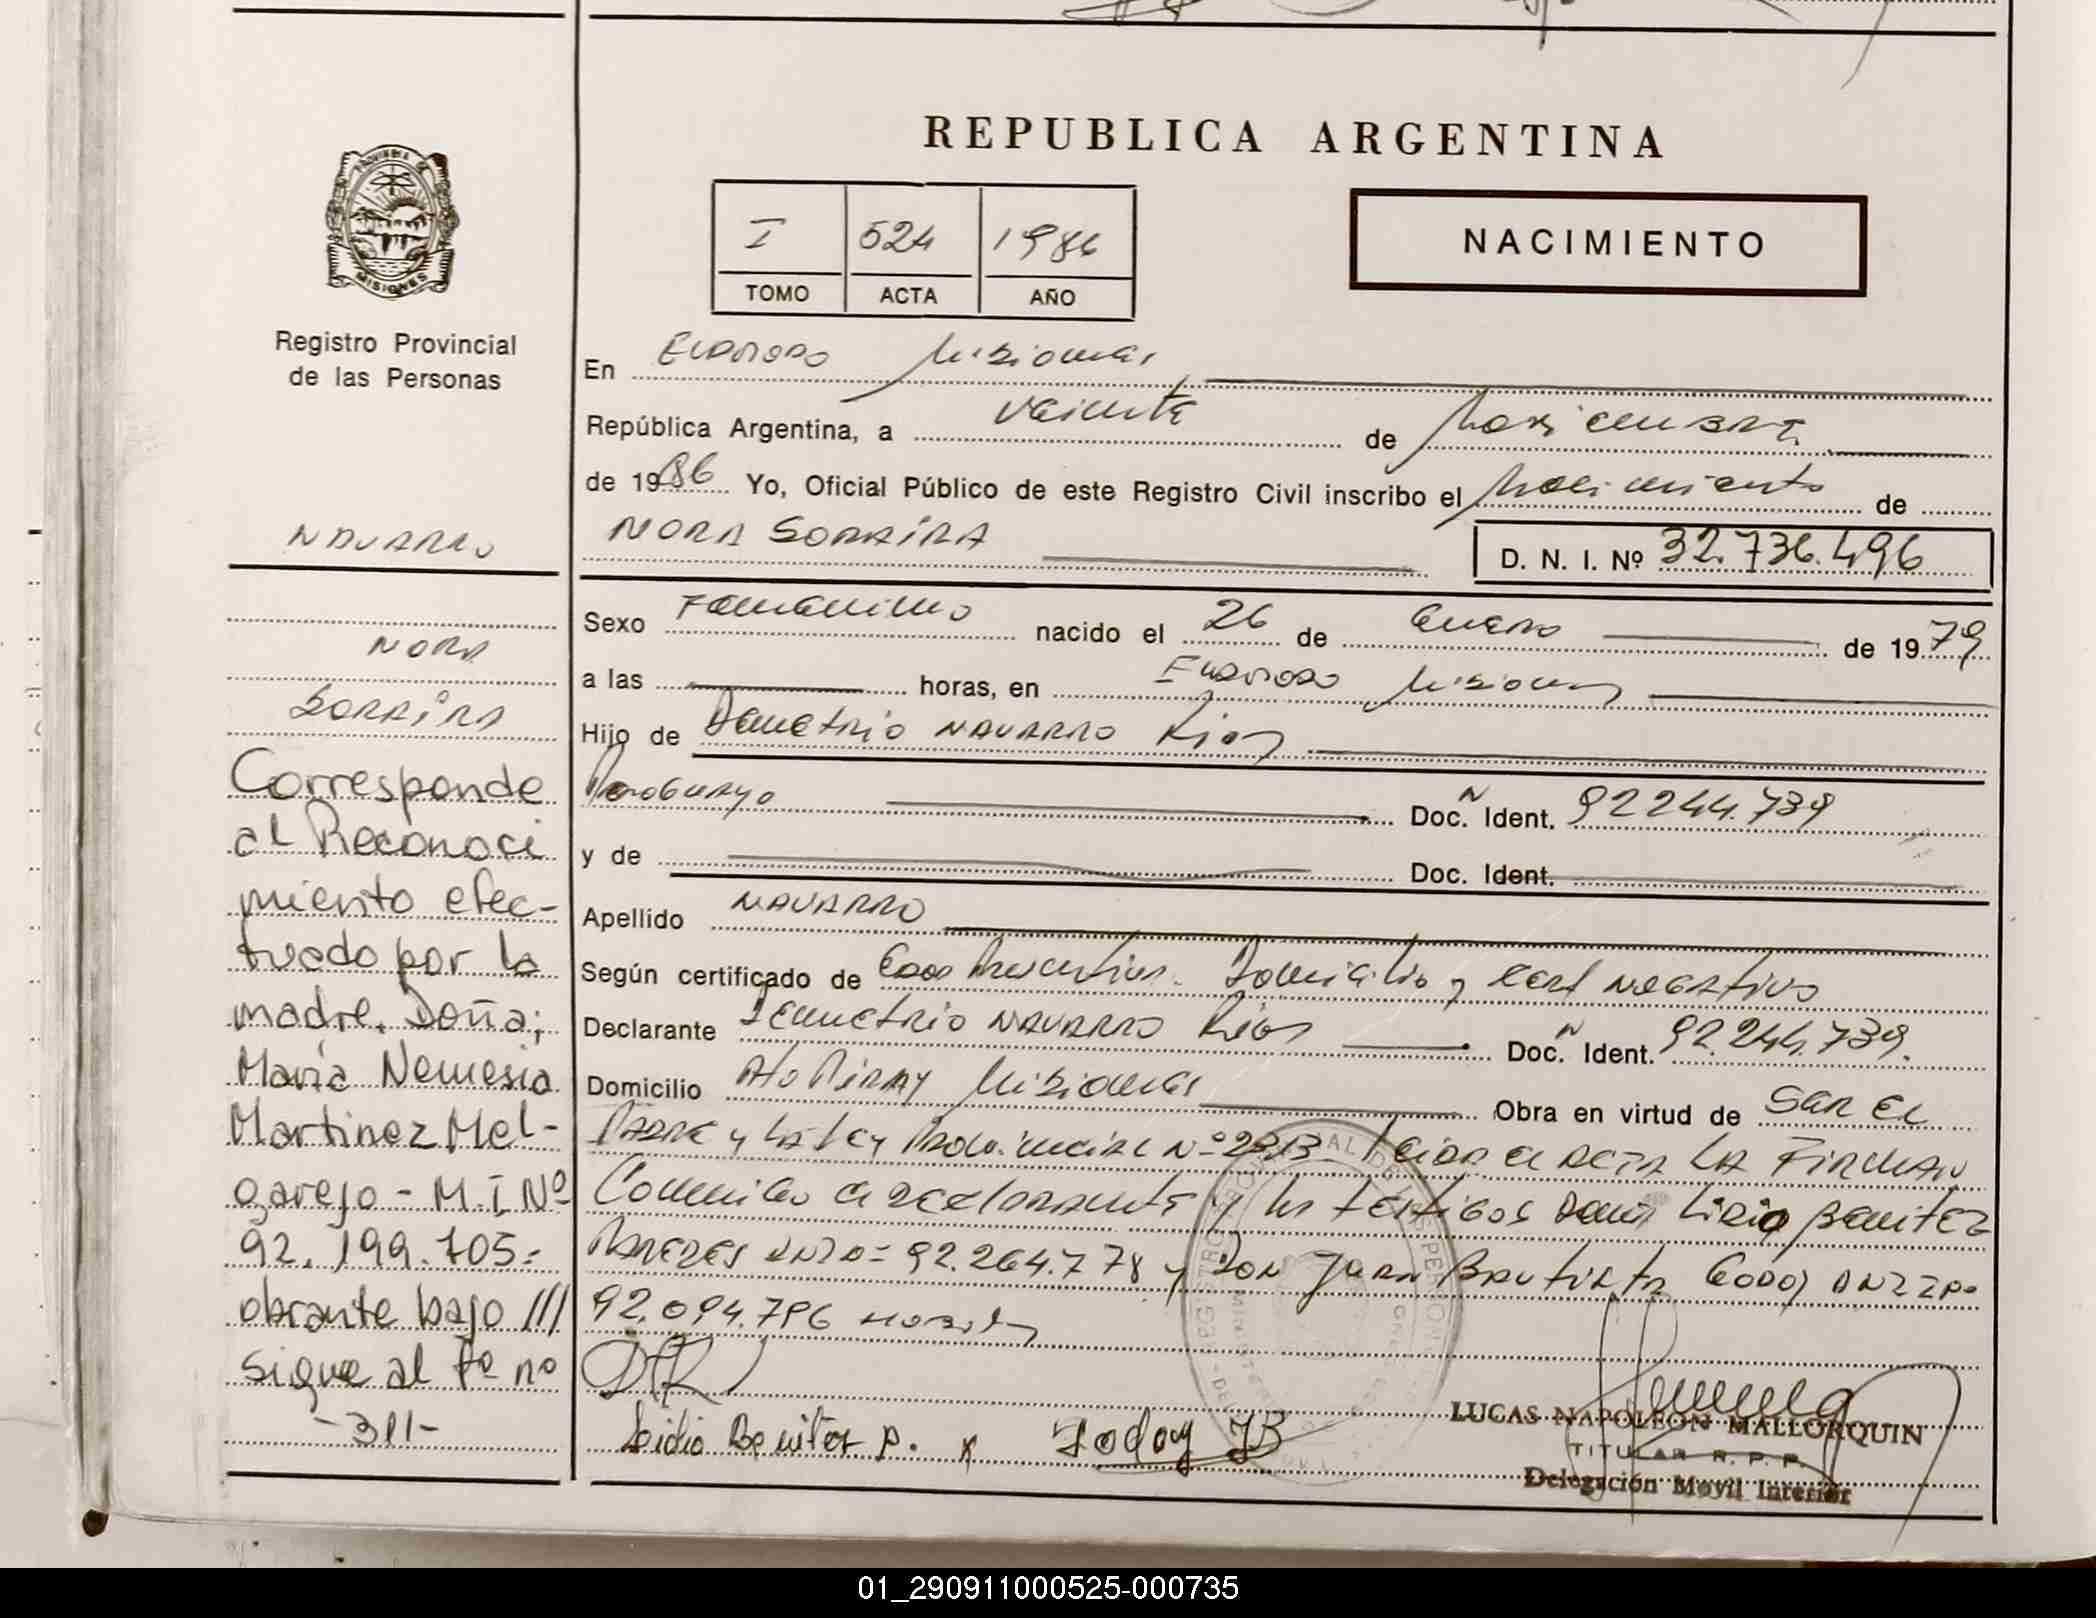 REPUBLICA ARGENTINA
I 524 1986
TOMO ACTA AÑO
NACIMIENTO
MISIONES
Registro Provincial
de las Personas
NAVARRO
NORA
SORAIRA
Corresponde
al Reconoci
miento efec-
tuado por la
madre. Doña;
María Nemesia
Martinez Mel-
garejo - M.I Nº
92.199.705=
obrante bajo ///
sigue al Fº nº
-311-
En Eldorado Misiones
República Argentina, a veinte de Noviembre
de 1986 Yo, Oficial Público de este Registro Civil inscribo el Nacimiento de
NORA SORAIRA D. N. I. Nº 32.736.496
Sexo Femenino nacido el 26 de Enero de 1979
a las horas, en Eldorado Misiones
Hijo de Demetrio NAVARRO Rios
Paraguayo Doc. Ident. 92244.739
y de Doc. Ident.
Apellido NAVARRO
Según certificado de Domicilio y cert negativo
Declarante Demetrio NAVARRO Rios Doc. Ident. 92.244.739.
Domicilio Alto Piray Misiones Obra en virtud de ser el
Padre y la Ley Provincial Nº 2313- Leida el acta la Firman
Conmigo el declarante y los testigos Lidio Benitez
92.264.778 y Don Juan Bautista Godoy
92.094.796
Lidio Benitez P. x Godoy JB
LUCAS NAPOLEON MALLORQUIN
TITULAR R. P. P.
Delegación Movil Interior
01_290911000525-000735